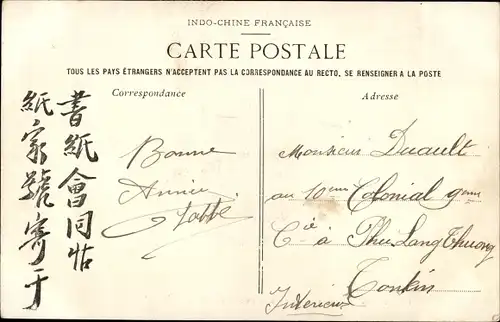 INDO-CHINE FRANÇAISE
CARTE POSTALE
TOUS LES PAYS ÉTRANGERS N'ACCEPTENT PAS LA CORRESPONDANCE AU RECTO, SE RENSEIGNER A LA POSTE
Correspondance
Adresse
書紙會同帖
紙家號寄于
Bonne
Année
Monsieur Duault
au 10ème Colonial 9ème
Cie à Phu Lang Thuong
Tonkin
Intérieur